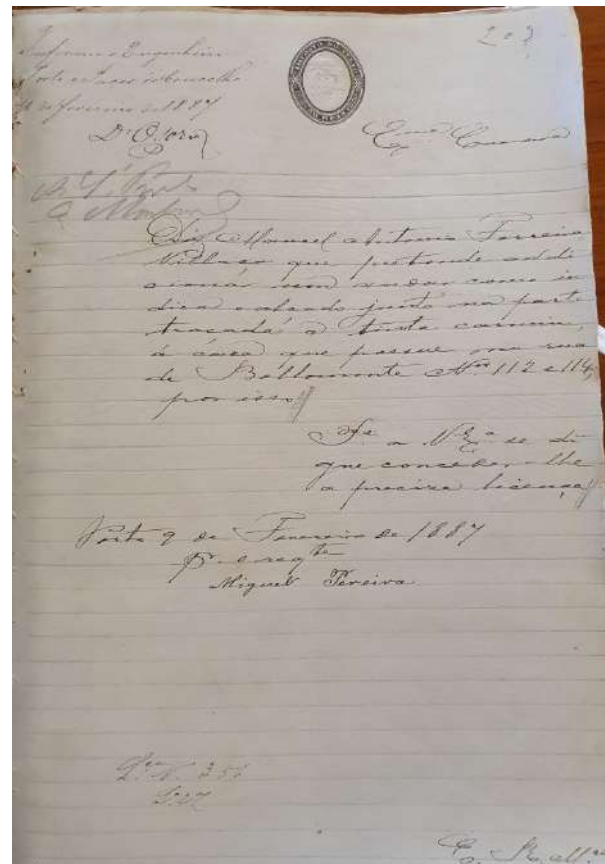 207
Informe o Engenheiro
Porto e Paços do Concelho
de fevereiro de 1887
Exma Camara
Diz Manoel Antonio Ferreira
Villaça que pretende addi
cionár um andar como in
dica o alçado junto na parte
traçada á tinta carmim,
á cáza que possue na rua
de Bellomonte Nos 112 e 114,
por isso
P. a V. Exa se di
gne conceder-lhe
a precisa licença
Porto 9 de Fevereiro de 1887
P. o reqte
Miguel Pereira